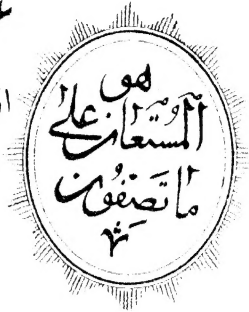 هو
المستعان علی
ما تصفون